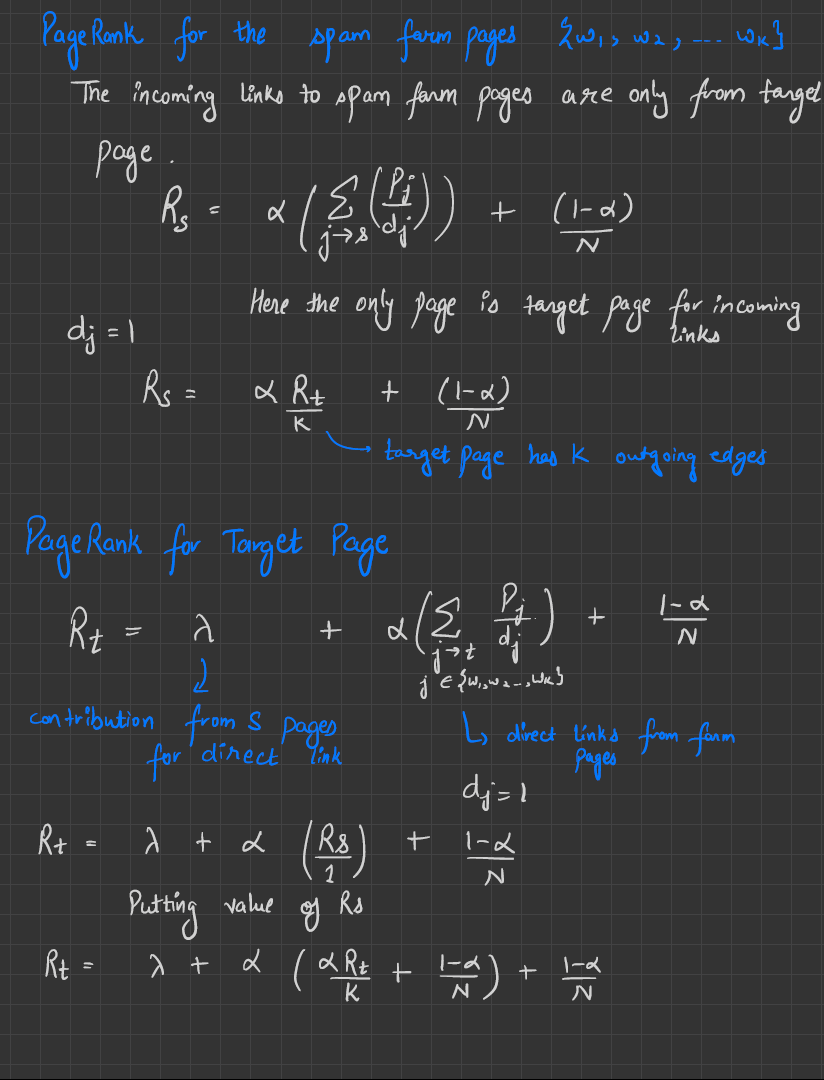 PageRank for the spam farm pages {w₁, w₂, ... wₖ}
The incoming links to spam farm pages are only from target
page.
Rₛ = α ( Σ_{j→s} (Pⱼ/dⱼ) ) + (1-α)/N
Here the only page is target page for incoming
links
dⱼ = 1
Rₛ = α Rₜ/K + (1-α)/N
target page has K outgoing edges
PageRank for Target Page
Rₜ = λ + α ( Σ_{j→t} Pⱼ/dⱼ ) + 1-α/N
j ∈ {w₁,w₂..,wₖ}
contribution from S pages
for direct link
↳ direct links from farm
pages
dⱼ = 1
Rₜ = λ + α (Rₛ/1) + 1-α/N
Putting value of Rs
Rₜ = λ + α ( αRₜ/K + 1-α/N ) + 1-α/N